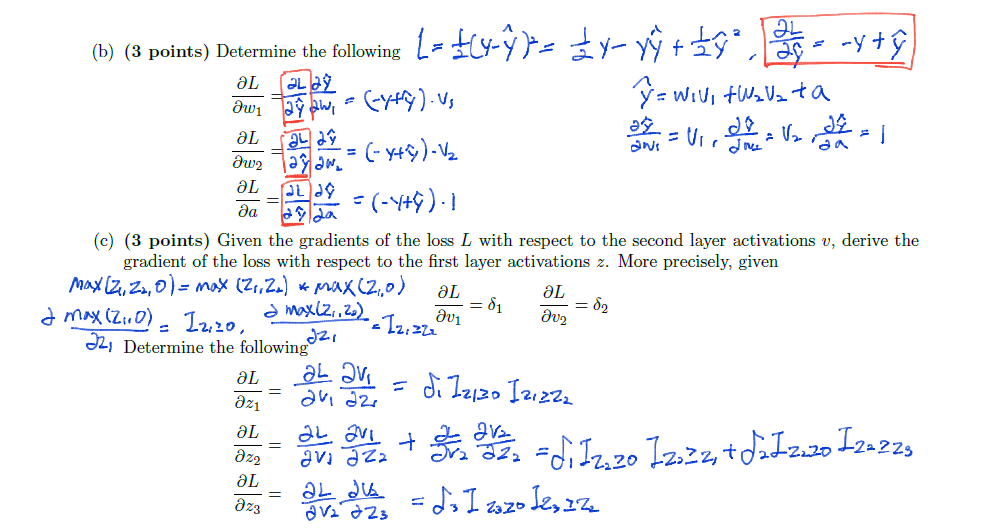 (b) (3 points) Determine the following L = ½(y-ŷ)² = ½y - yŷ + ½ŷ², ∂L/∂ŷ = -y + ŷ
∂L/∂w₁ = ∂L/∂ŷ ∂ŷ/∂w₁ = (-y+ŷ)·v₁
ŷ = w₁v₁ + w₂v₂ + a
∂L/∂w₂ = ∂L/∂ŷ ∂ŷ/∂w₂ = (-y+ŷ)·v₂
∂ŷ/∂w₁ = v₁, ∂ŷ/∂w₂ = v₂, ∂ŷ/∂a = 1
∂L/∂a = ∂L/∂ŷ ∂ŷ/∂a = (-y+ŷ)·1
(c) (3 points) Given the gradients of the loss L with respect to the second layer activations v, derive the
gradient of the loss with respect to the first layer activations z. More precisely, given
max(z₁,z₂,0) = max(z₁,z₂) * max(z₁,0)
∂L/∂v₁ = δ₁ ∂L/∂v₂ = δ₂
∂max(z₁,0)/∂z₁ = I z₁≥0, ∂max(z₁,z₂)/∂z₁ = I z₁≥z₂
Determine the following
∂L/∂z₁ = ∂L/∂v₁ ∂v₁/∂z₁ = δ₁ I z₁≥0 I z₁≥z₂
∂L/∂z₂ = ∂L/∂v₁ ∂v₁/∂z₂ + ∂L/∂v₂ ∂v₂/∂z₂ = δ₁ I z₂≥0 I z₂≥z₁ + δ₂ I z₂≥0 I z₂≥z₃
∂L/∂z₃ = ∂L/∂v₂ ∂v₂/∂z₃ = δ₃ I z₃≥0 I z₃≥z₂